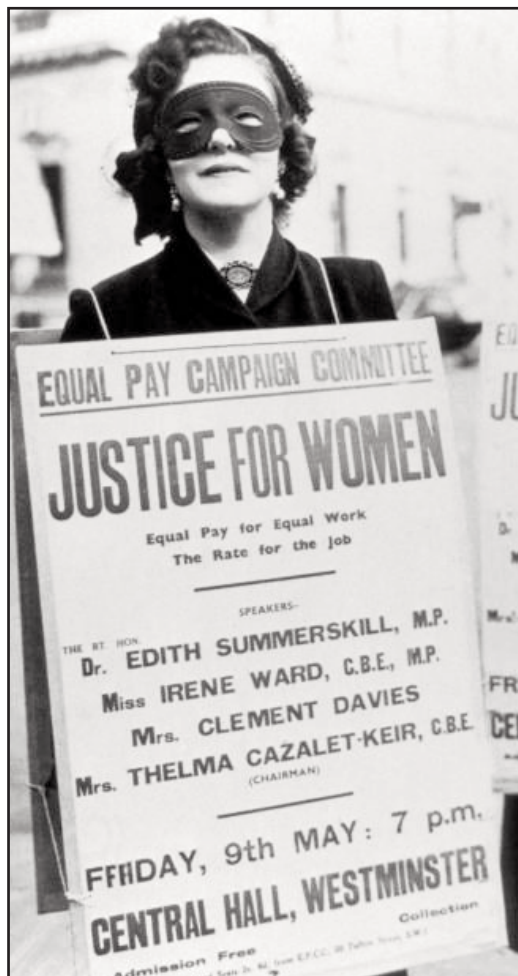 EQUAL PAY CAMPAIGN COMMITTEE
JUSTICE FOR WOMEN
Equal Pay for Equal Work
The Rate for the Job
SPEAKERS-
THE RT. HON.
Dr. EDITH SUMMERSKILL, M.P.
Miss IRENE WARD, C.B.E., M.P.
Mrs. CLEMENT DAVIES
Mrs. THELMA CAZALET-KEIR, C.B.E.
(CHAIRMAN)
FRIDAY, 9th MAY: 7 p.m.
CENTRAL HALL, WESTMINSTER
Admission Free Collection
from E.P.C.C.
EQ
JU
D
Mrs
FR
CE